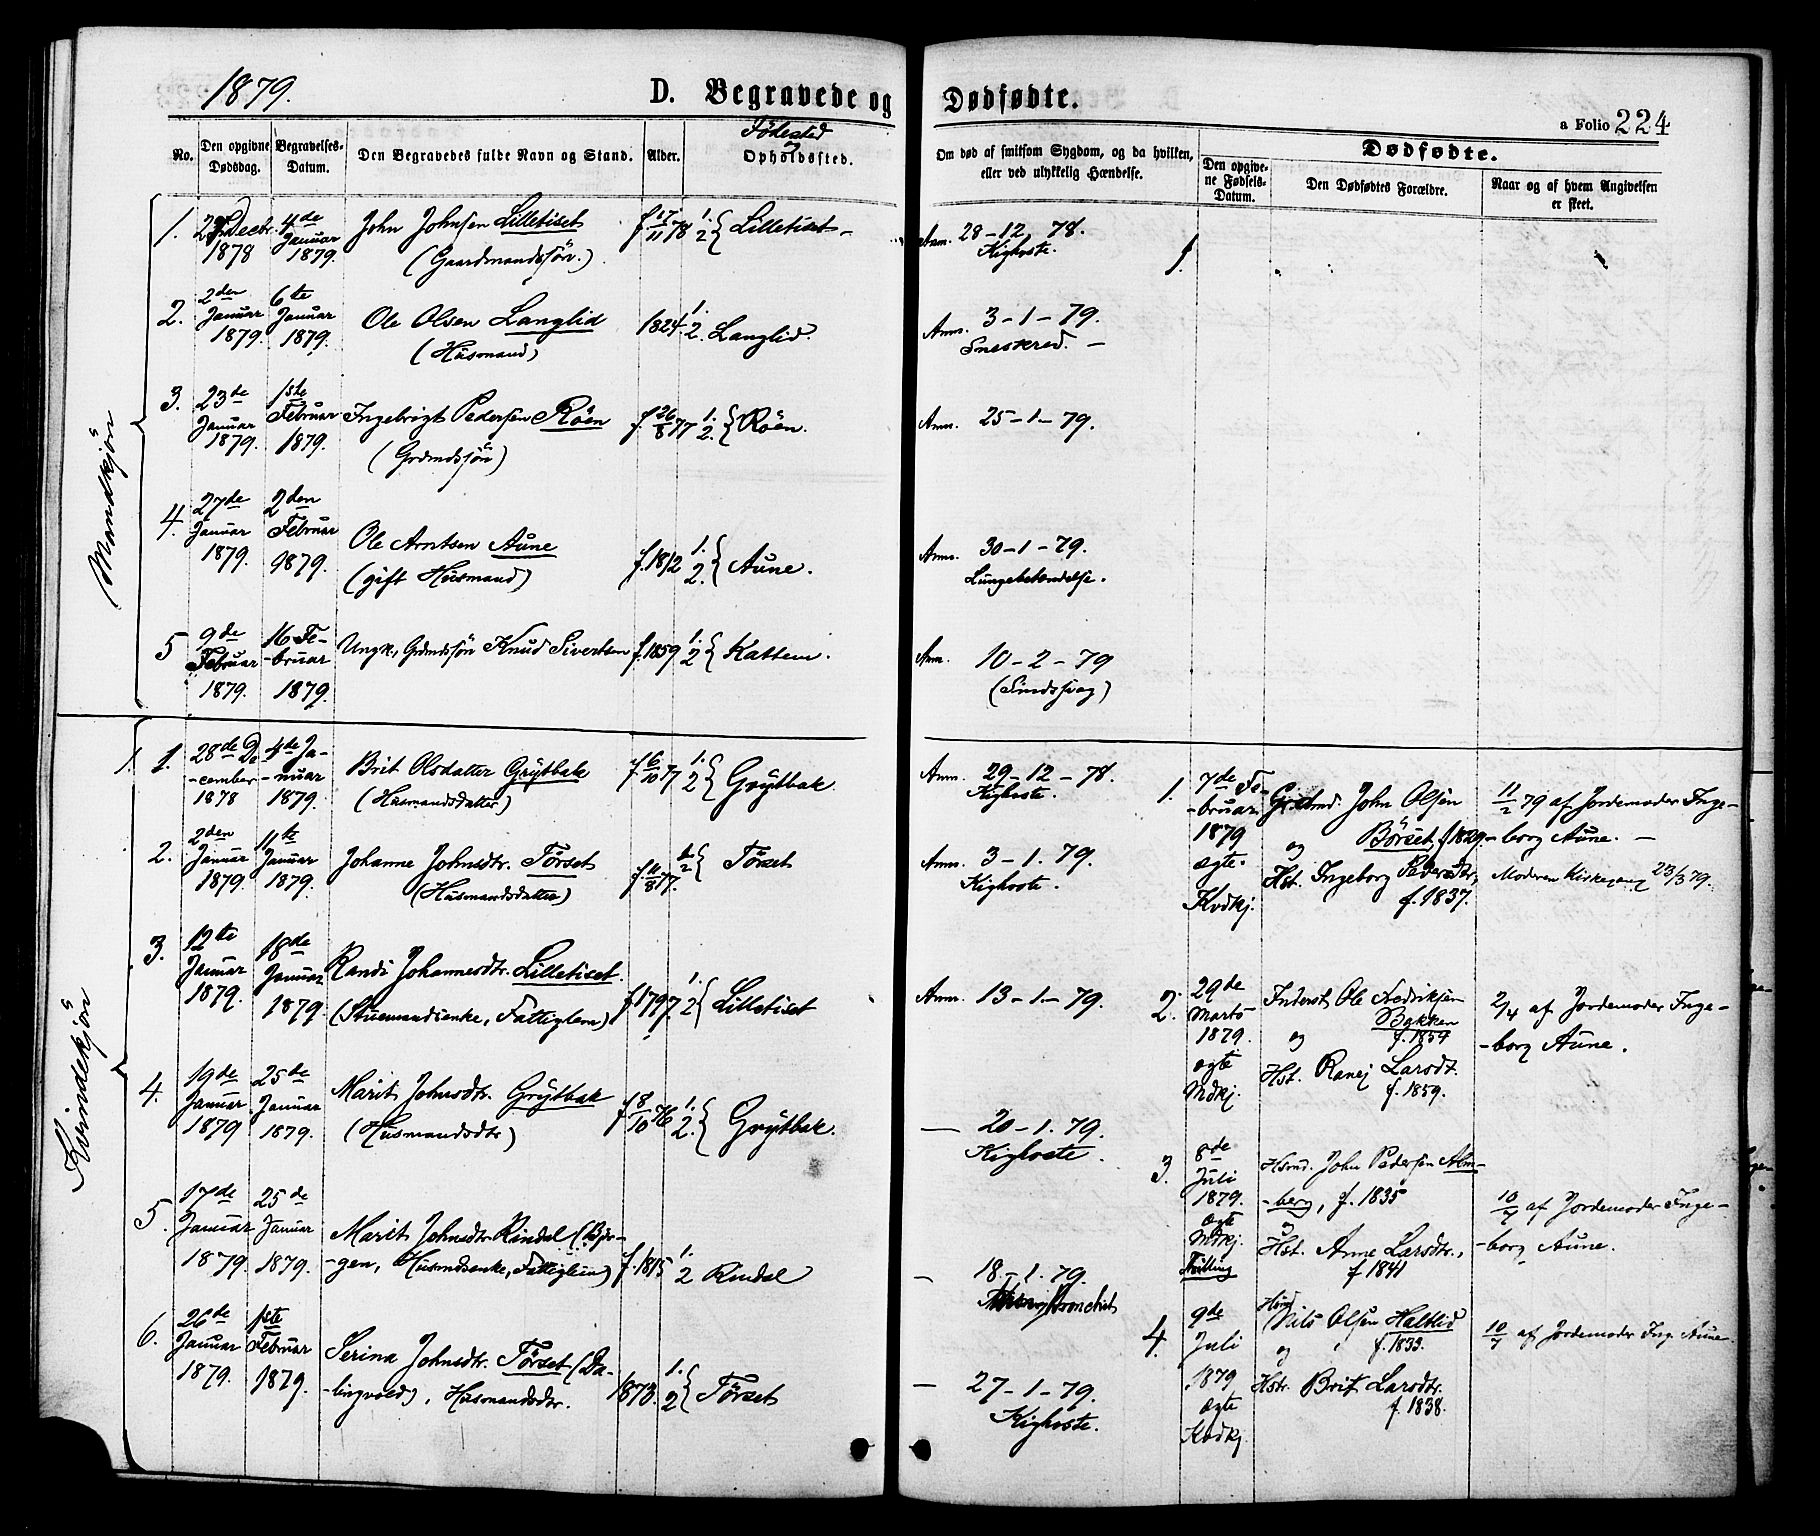 1879.
D. Begravede og Dødfødte.
a Folio 224
No.
Den opgivne Dødsdag.
Begravelses-Datum.
Den Begravedes fulde Navn og Stand.
Alder.
Fødested
Opholdssted.
Om død af smitsom Sygdom, og da hvilken,
eller ved ulykkelig Hændelse.
Dødfødte.
Den opgivne Fødsels-Datum.
Den Dødfødtes Forældre.
Naar og af hvem Angivelsen er skeet.
Mandkjön
1. Decbr. 1878 4de Januar 1879. John Johnsen Lilletiset f. 17/11 78 1. 2 { Lilletiset - Anm. 28-12 78.
(Gaardmandssön.) Kighoste.
2. 2den Januar 1879. 6te Januar 1879. Ole Olsen Langlid 1824. 1. 2. Langlid. Anm. 3-1-79.
(Husmand) Sneskred. -
3. 23de Januar 1879. 1ste Februar 1879. Ingebrigt Pedersen Röen f. 26/8 77 1. 2. { Röen. Anm. 25-1-79.
(Grdmdssön)
4. 27de Januar 1879. 2den Februar 1879. Ole Arntsen Aune f. 1812 1. 2. { Aune. Anm. 30-1-79.
(gift Husmand) Lungebetændelse.
5 9de Februar 1879. 16 Februar 1879. Ungk. Grdmdssön Knud Sivertsen f. 1859 1. 2 { Kattem. Anm. 10-2-79
(Sindssvag)
Kvindekjön
1. 1. 28de December 1878 4de Januar 1879. Brit Olsdatter Grytbak f. 6/10 77 1. 2 { Grytbak Anm. 29-12-78.
(Husmandsdatter) Kighoste.
2. 2den Januar 1879. 11te Januar 1879. Johanne Johnsdtr. Törset f. 11/8 77. 1. 2 { Törset Anm. 3-1. 79.
(Husmandsdatter) Kighoste.
3. 12te Januar 1879. 18de Januar 1879. Randi Johannesdtr. Lilletiset. f. 1797. 1. 2 { Lilletiset Anm. 13-1-79.
(Stuemandsenke, Fattiglem)
4. 19de Januar 1879 25de Januar 1879. Marit Johnsdtr. Grytbak f. 8/10 76 1. 2. { Grytbak. — 20-1. 79.
(Husmandsdtr) Kighoste.
5. 17de Januar 1879. 25de Januar 1879. Marit Johnsdtr Rindal (Bjør-
-gen, Husmdsenke, Fattiglem) f. 1815 1. 2 Rindal — 18-1. 79.
Bronchit
6. 26de Januar 1879. 1ste Februar 1879. Serina Johnsdtr. Törset (Da-
-lingvold), Husmandsdtr. 1878. 1. 2 { Törset — 27-1-79.
Kighoste.
1. 7de Februar 1879 ægte. Kvdkj. Grdmd. John Olsen 11/2 79 af Jordemoder Inge-
og Börset, f. 1829. -borg Aune. -
Hst. Ingeborg Pedersdtr, Moderen Kirkegang 23/3 79.
f. 1837.
2. 29de Marts 1879. ægte Mdkj. Inderst Ole Fredriksen 2/4 af Jordemoder Inge-
og Bakken f. 1854 -borg Aune.
Hst. Ranej Larsdt. f. 1859.
3. 8de Juli 1879. ægte Mdkj. Tvilling Hsmd. John Pedersen Alm-
-berg, f. 1835 10/7 af Jordemoder Inge-
Hst. Anne Larsdtr., -borg Aune.
f 1841
4. 9de Juli 1879 ægte Kvdkj. Hsmd Nils Olsen Haltlid 10/7 af Jordemoder Ing. Aune.
og f. 1833.
Hstr. Brit Larsdtr.
f. 1838.